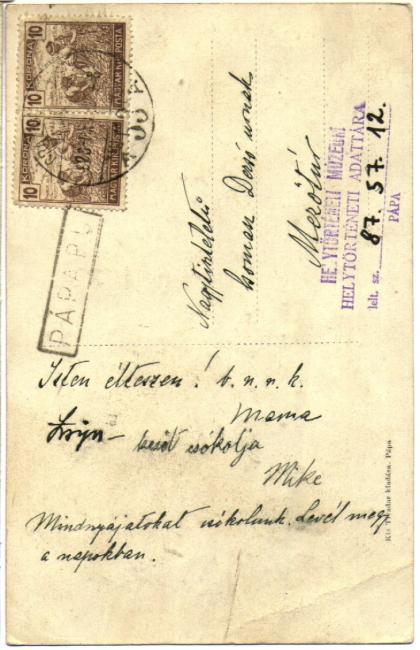 10 KORONA 10
MAGYAR KIR. POSTA
10 KORONA 10
MAGYAR KIR. POSTA
PÁPA PU
Nagytekintetű
Homan Dezső urnak
Mezőtúr
HELYTÖRTÉNETI MÚZEUM
HELYTÖRTÉNETI ADATTÁRA
87. 57. 12.
lelt. sz.
PÁPA
Isten éltessen! b. n. n. k.
Mama
kezét csókolja
Mike
Mindnyájatokat csókolunk. Levél megy
a napokban.
Kis Tivadar kiadása, Pápa